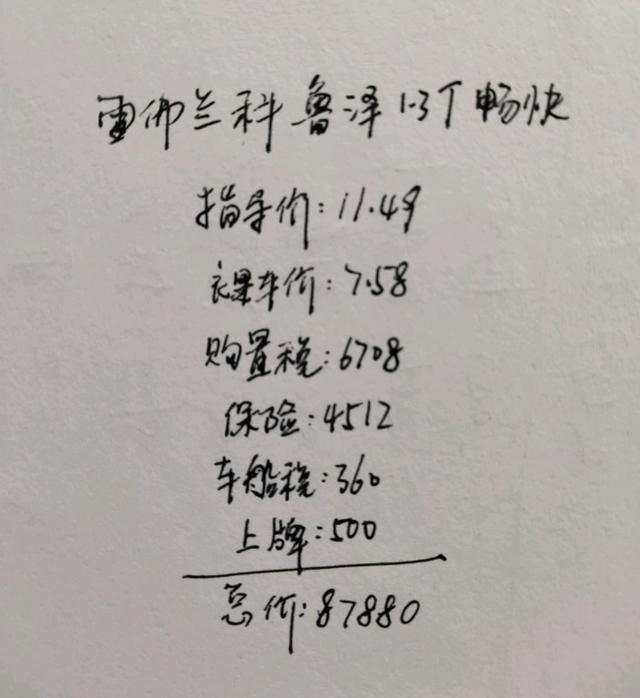 雪佛兰科鲁泽1.3T畅快
指导价:11.49
裸车价:7.58
购置税:6708
保险:4512
车船税:360
上牌:500
总价:87880